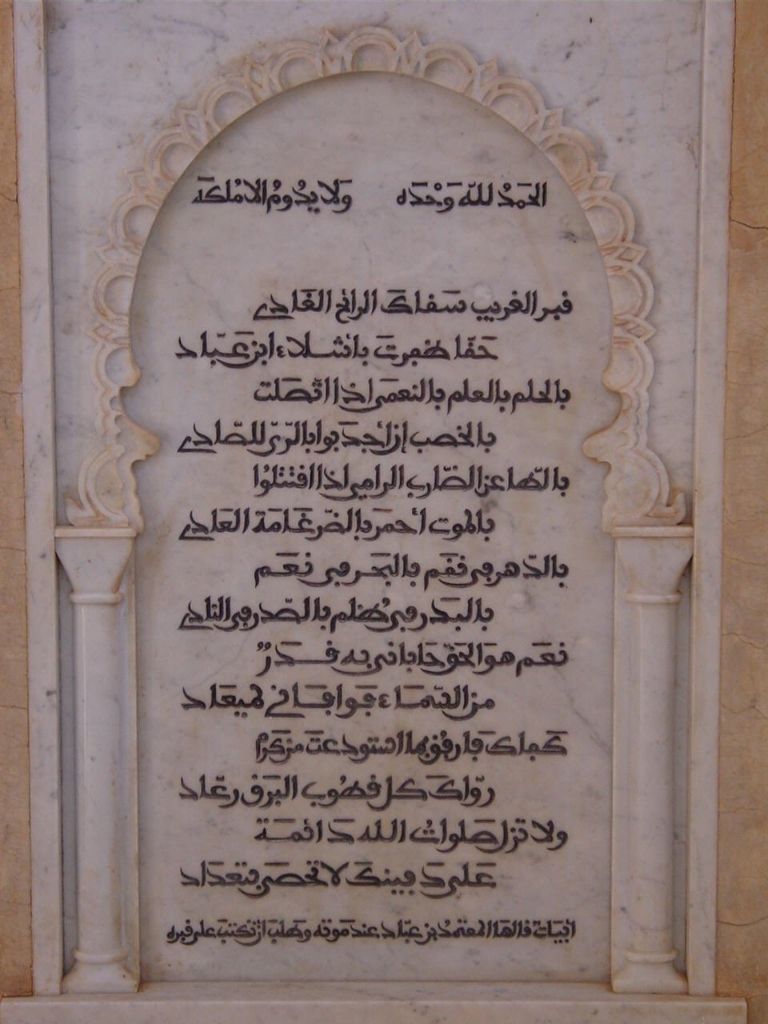 الحَمْدُ للّه وَحْدَه وَلَا يدُومُ إلا مُلكه
قبر الغريب سَقاكَ الرائحُ الغَادي
حَقّا ظفِرتَ بأشلاء ابن عَبّاد
بالحلم بالعلم بالنعمى إذا اتّصَلت
بالخصب إن أجدَبوا بالرّيّ للصّادي
بالطّاعن الضّارب الرامي إذا اقتتلُوا
بالموت أحمَر بالضّرغَامة العَادي
بالدّهر في نقَم بالبَحر في نعَم
بالبَدر في ظُلم بالصّدر في النادي
نعَم هو الحَقّ حَاباني به قَدَرٌ
من السّمَاء فوافَاني لميعَاد
كَفاك فارفُق بما استودعتَ من كرَمٍ
روّاكَ كل قطُوب البَرق رعّاد
ولا تزل صَلواتُ الله دَائمَة
عَلى دَفينكَ لا تحصَى بتعدَاد
أبيَات قالهَا المعتمدُ بن عبّاد عند موته وطلبَ أن تكتبَ على قبره